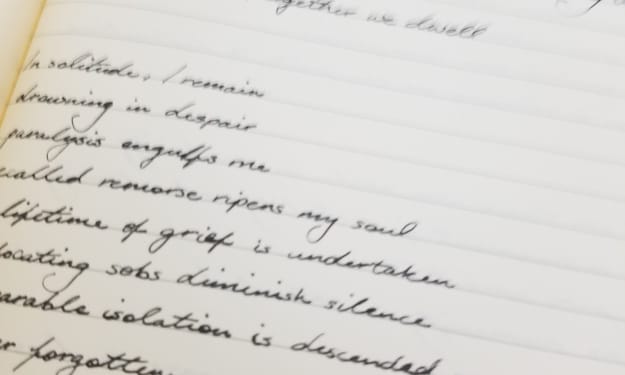 together we dwell
In solitude, I remain
drowning in despair
paralysis engulfs me
remorse ripens my soul
lifetime of grief is undertaken
sobs diminish silence
isolation is descended
forgotten